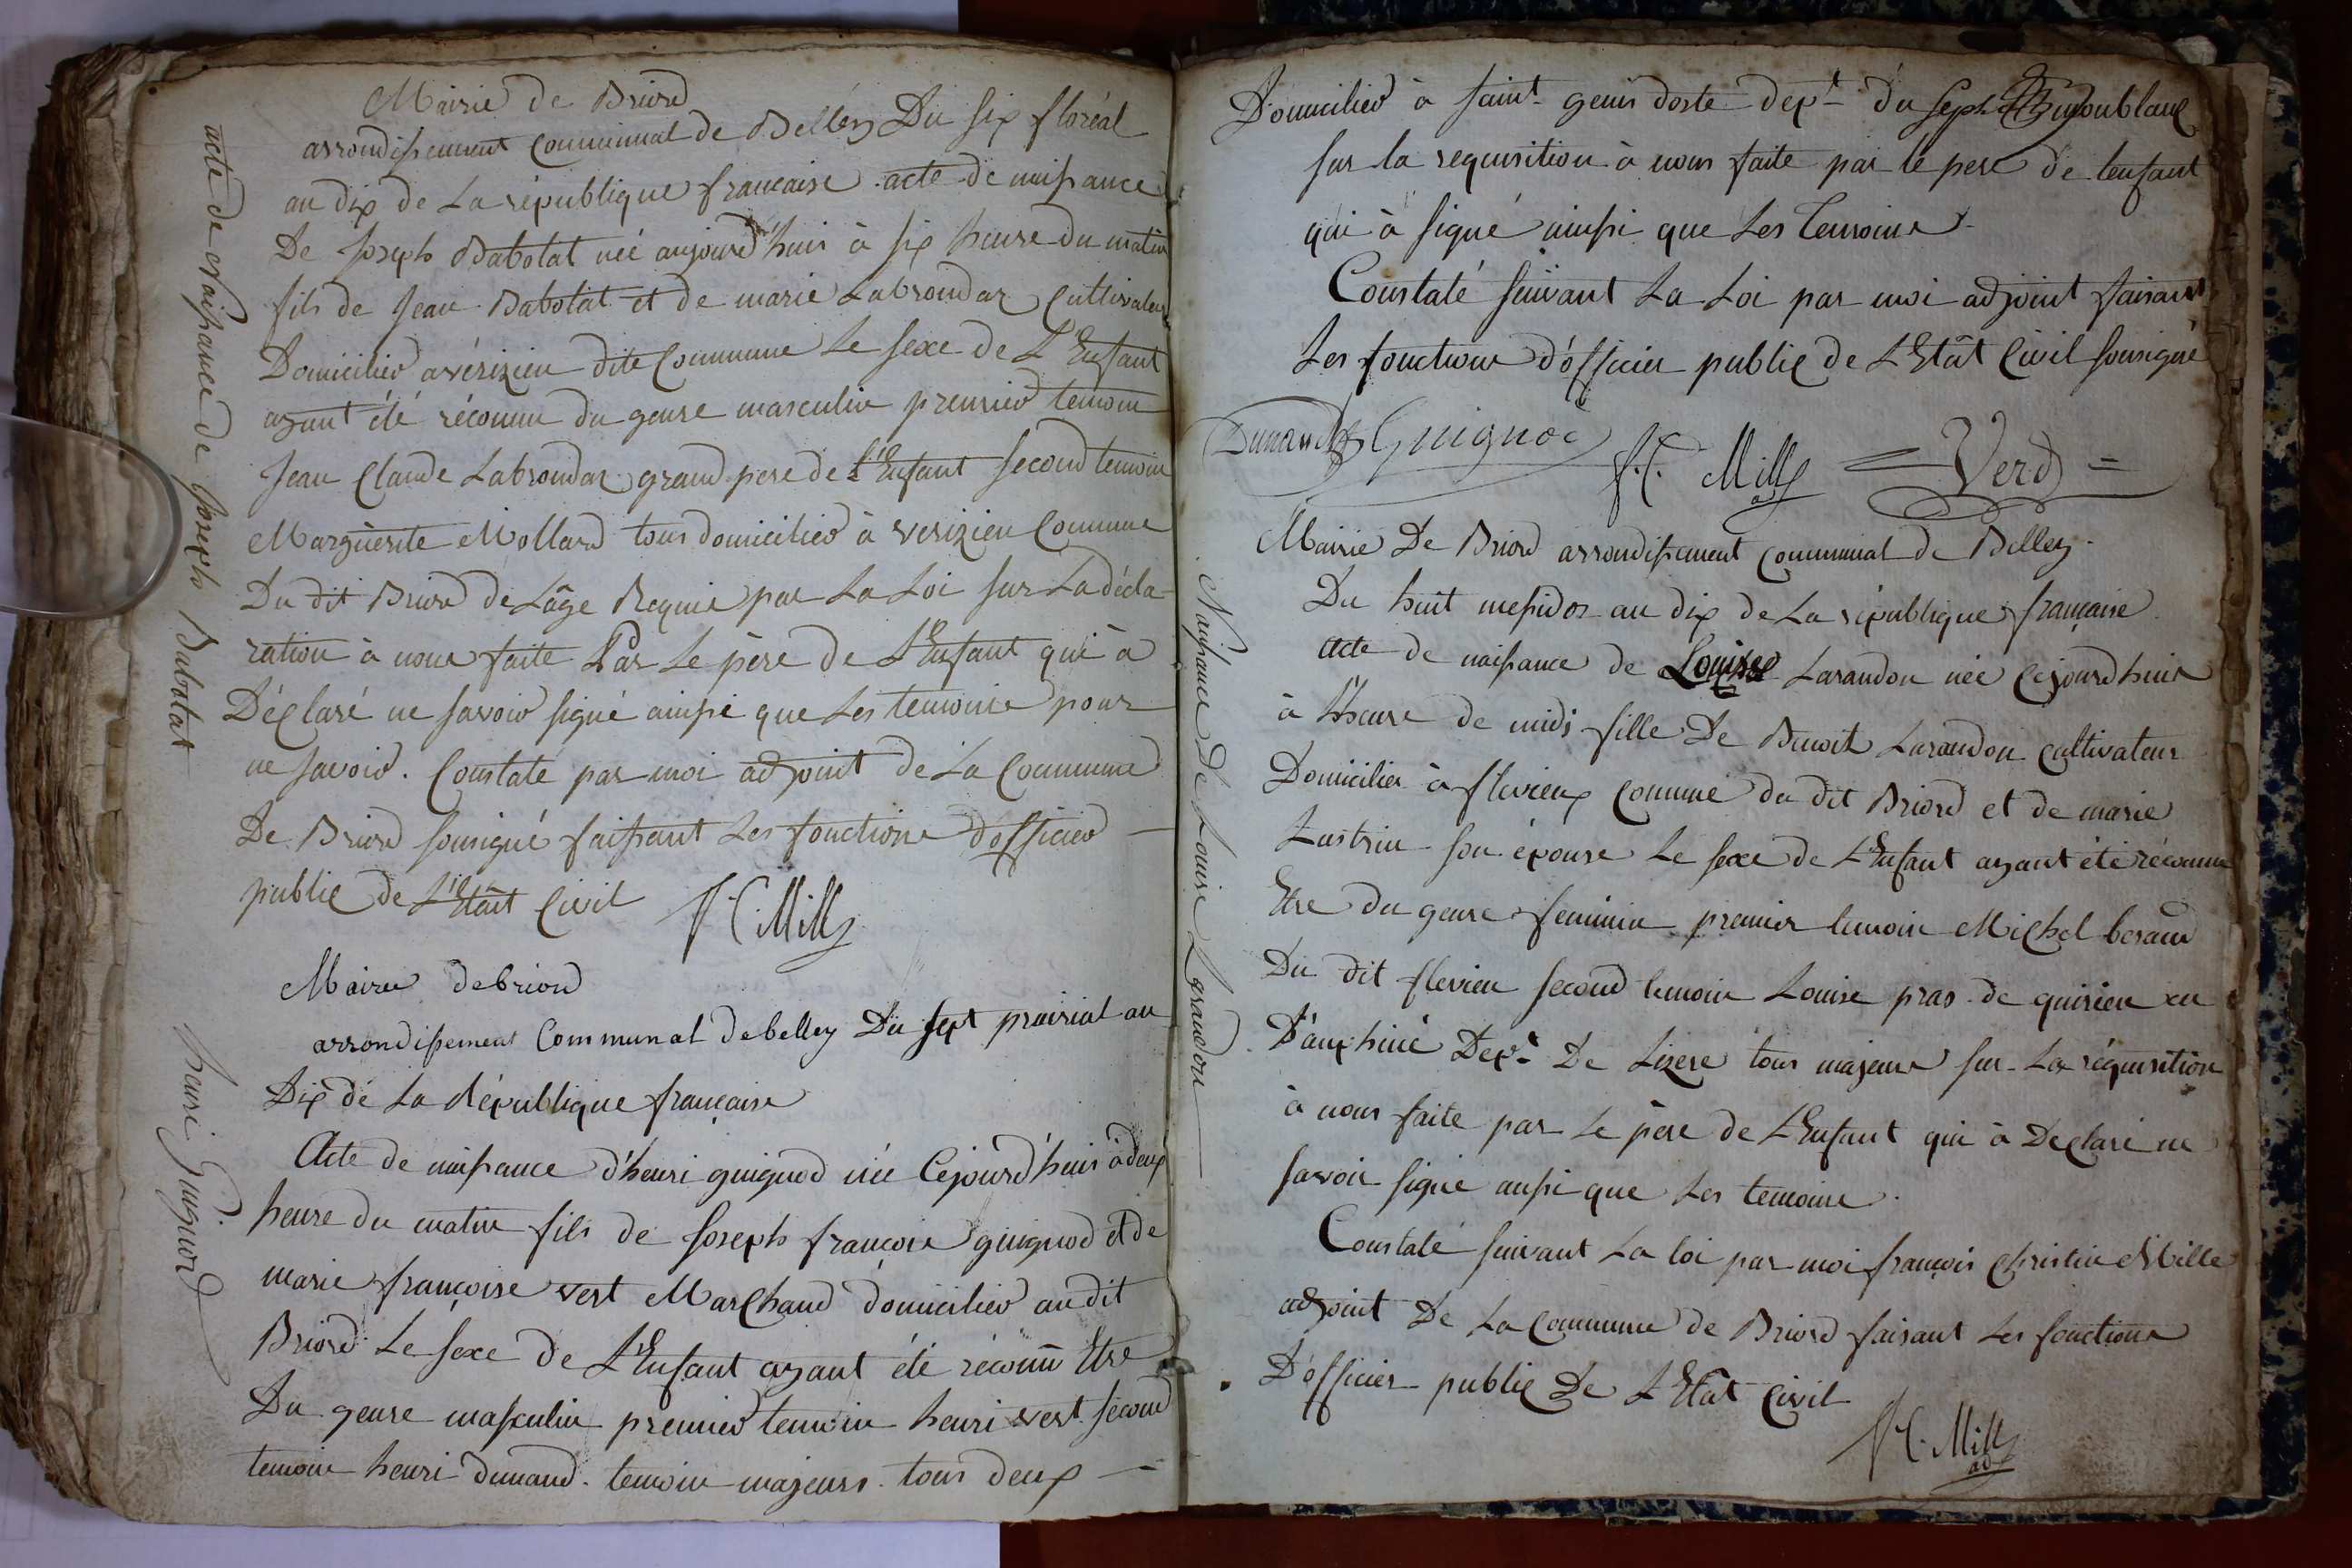 Mairie de Briord
arrondissement Communal de Belley Du six floréal
an dix de La république francaise acte de naissance
De Joseph Babolat née aujourd'hui à six heure du matin
fils de Jean Babolat et de marie Labrondaz Cultivateur
Domicilied a vérizieu dite Commune Le sexe de L'Enfant
ayant été réconnu du genre masculin premied temoin
Jean Claude Labrondaz grand pere de L'Enfant second temoin
Marguérite Mollard tous domicilied à verizieu Commune
Du dit Briord de L'âge Requis par La Loi sur La décla-
ration à nous faite Par Le père de L'Enfant qui à
Déclaré ne savoir signé ainssi que Les temoins pour
ne savoir. Constaté par moi adjoint de La Commune
De Briord sousigné faissant Les fonctions d'officier —
public de L'Etât Civil
F. C. Mille
acte de Naissance de Joseph Babolat
Maire de briord
arrondissement Communal de belley Du sept prairial an
Dix de La république francaise
Acte de naissance d'henri guignod née Cejourd'hui à deux
heure du matin fils de Joseph françois guignod et de
marie françoise vert Marchand domicilied au dit
Briord Le sexe de L'Enfant ayant été réconnu Etre
Du genre masculin premied temoin henri vert second
temoin henri dunand. temoin majeurs. tous deux —
henri Guignod
Domicilied à saint genis doste dept du
sur la requisition à nous faite par le pere de lenfant
qui à signé ainssi que Les Temoins
Constaté suivant La Loi par moi adjoint faisant
Les fonctions d'officier public de L'Etât Civil sousigné
Dunand Guignod F. C. Mille ad = Verd =
Mairie De Briord arrondissement communal de Belley.
Du huit messidor an dix de La république française
acte de naissance de Louise Larandon née Cejourd'huit
à l'heure de midi fille De Benoit Larandon cultivateur
Domicilier à flevieux Commune du dit Briord et de marie
Lustrin son épouse Le sexe de L'Enfant ayant été réconnu
Etre du genre feminin premier temoin Michel beraud
Du dit flevieu second temoin Louise pras de quirieu en
D'auphiné Dept De Lizere tous majeurs sur La réquisition
à nous faite par Le père de L'Enfant qui à Declaré ne
savoir signé ainssi que Les temoins.
Constaté suivant La loi par moi françois Christin Mille
adjoint De La Commune de Briord faisant Les fonctions
D'officier public De L'Etât Civil
F. C. Mille
ad
Naissance De Louise Larandon